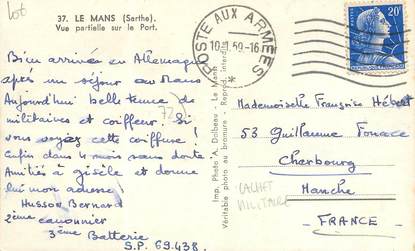 lot
37. LE MANS (Sarthe).
Vue partielle sur le Port.
Bien arrivée en Allemagne
après un séjour au Mans
Aujourd'hui belle tenue de
militaires et coiffeur. Si
vous voyiez cette coiffure!
Enfin dans 4 mois sans doute
Amitiés à Gisèle et donne
lui mon adresse
Husson Bernard
2ème canonnier
3ème Batterie
S.P. 69.438.
72
Imp. Photo A. Dolbeau - Le Mans
Véritable photo au bromure - Reprod. interdite
POSTE AUX ARMEES
10-1.59-16
*
20F
Mademoiselle Françoise Hébert
53 Guillaume Fouace
Cherbourg
Manche
- FRANCE -
CACHET
MILITAIRE